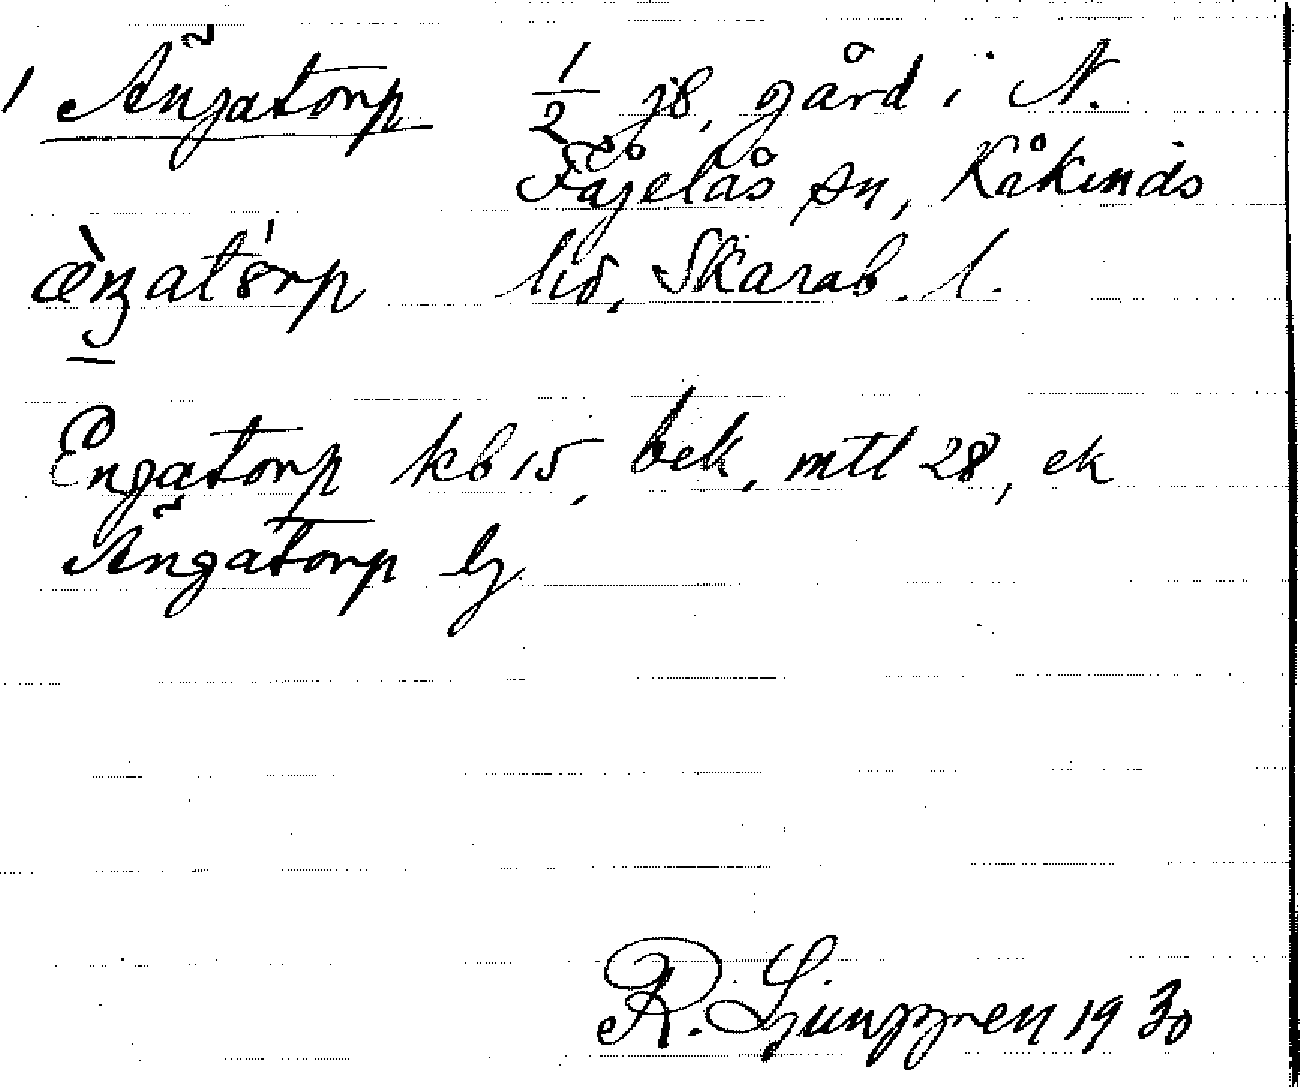 1 Ängatorp 1/2 jb, gård i N.
Fågelås sn, Kåkinds
hd, Skarab. l.
Engatorp kb 15, bek, mtl 28, ek
Ängatorp lj
R. Ljunggren 1930